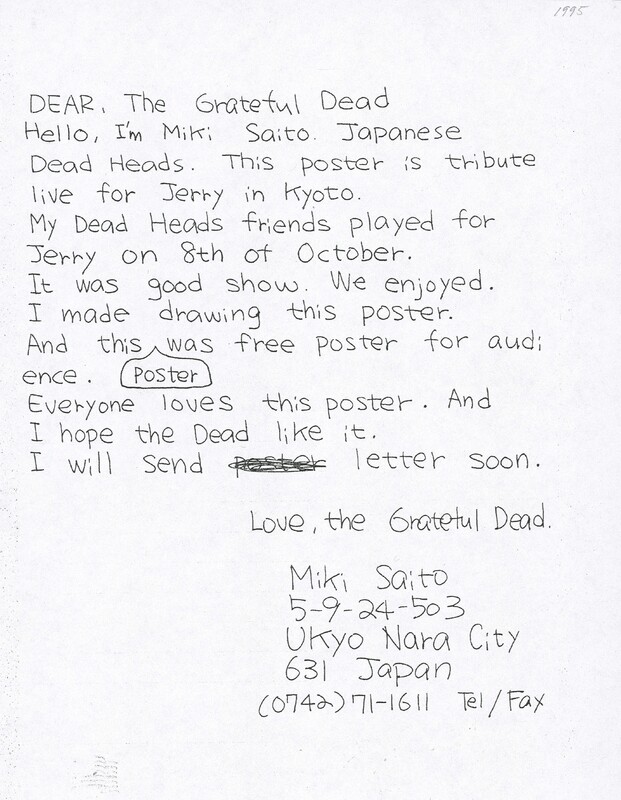 1995
DEAR, The Grateful Dead
Hello, I'm Miki Saito. Japanese
Dead Heads. This poster is tribute
live for Jerry in Kyoto.
My Dead Heads friends played for
Jerry on 8th of October.
It was good show. We enjoyed.
I made drawing this poster.
And this was free poster for audi
ence. poster
Everyone loves this poster. And
I hope the Dead like it.
I will send poster letter soon.
Love, the Grateful Dead.
Miki Saito
5-9-24-503
UKyo Nara City
631 Japan
(0742)71-1611 Tel/Fax